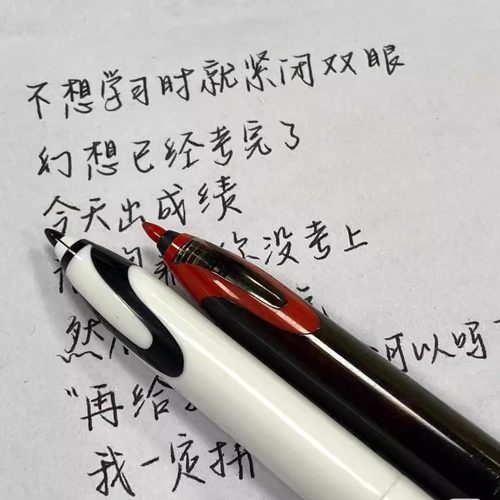 不想学习时就紧闭双眼
幻想已经考完了
今天出成绩
你没考上
然 可以吗
"再给
我一定拼